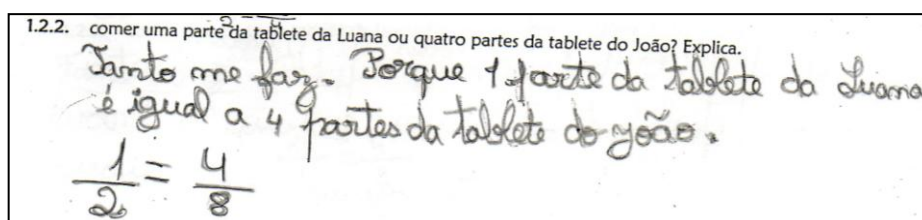 1.2.2. comer uma parte da tablete da Luana ou quatro partes da tablete do João? Explica.
Tanto me faz. Porque 1 parte da tablete da Luana
é igual a 4 partes da tablete do João.
1/2 = 4/8